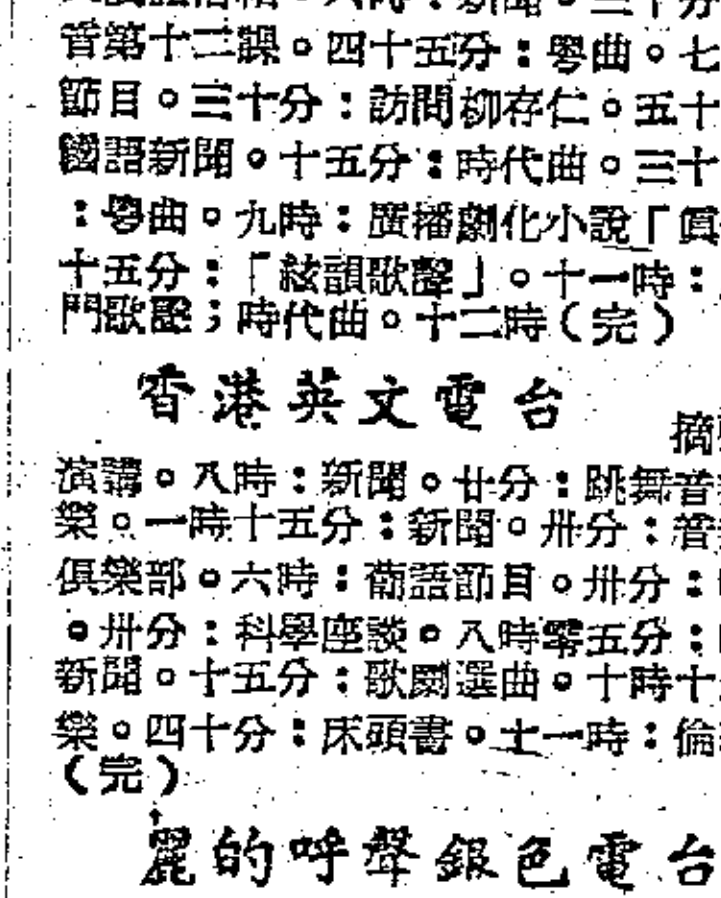 六時：新聞。三十分
音第十二課。四十五分：粵曲。七
節目。三十分：訪問柳存仁。五十
國語新聞。十五分：時代曲。三十
：粵曲。九時：廣播劇化小說「眞
十五分：「絃韻歌聲」。十一時：
門歌聲；時代曲。十二時（完）
香港英文電台
摘
演講。八時：新聞。廿分：跳舞音
樂。一時十五分：新聞。卅分：音
俱樂部。六時：葡語節目。卅分：
。卅分：科學座談。八時零五分：
新聞。十五分：歌劇選曲。十時十
樂。四十分：床頭書。十一時：倫
（完）
麗的呼聲銀色電台